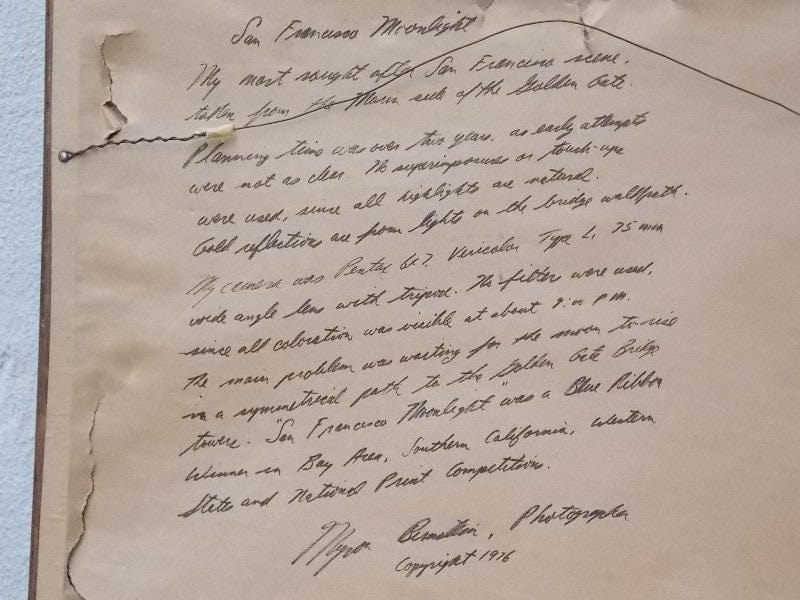 San Francisco Moonlight
My most sought after San Francisco scene,
taken from the Marin side of the Golden Gate.
Planning time was over two years, as early attempts
were not as clear. No superimposures or touch-ups
were used, since all highlights are natural.
Gold reflections are from lights on the bridge walkpath.
My camera was Pentax 6x7, Vericolor Type L, 75 mm
wide angle lens with tripod. No filters were used,
since all coloration was visible at about 9:00 P.M.
The main problem was waiting for the moon to rise
in a symmetrical path to the Golden Gate Bridge
towers. "San Francisco Moonlight" was a Blue Ribbon
Winner in Bay Area, Southern California, Western
States and National Print Competitions.
Myron Bernstein, Photographer
Copyright 1976